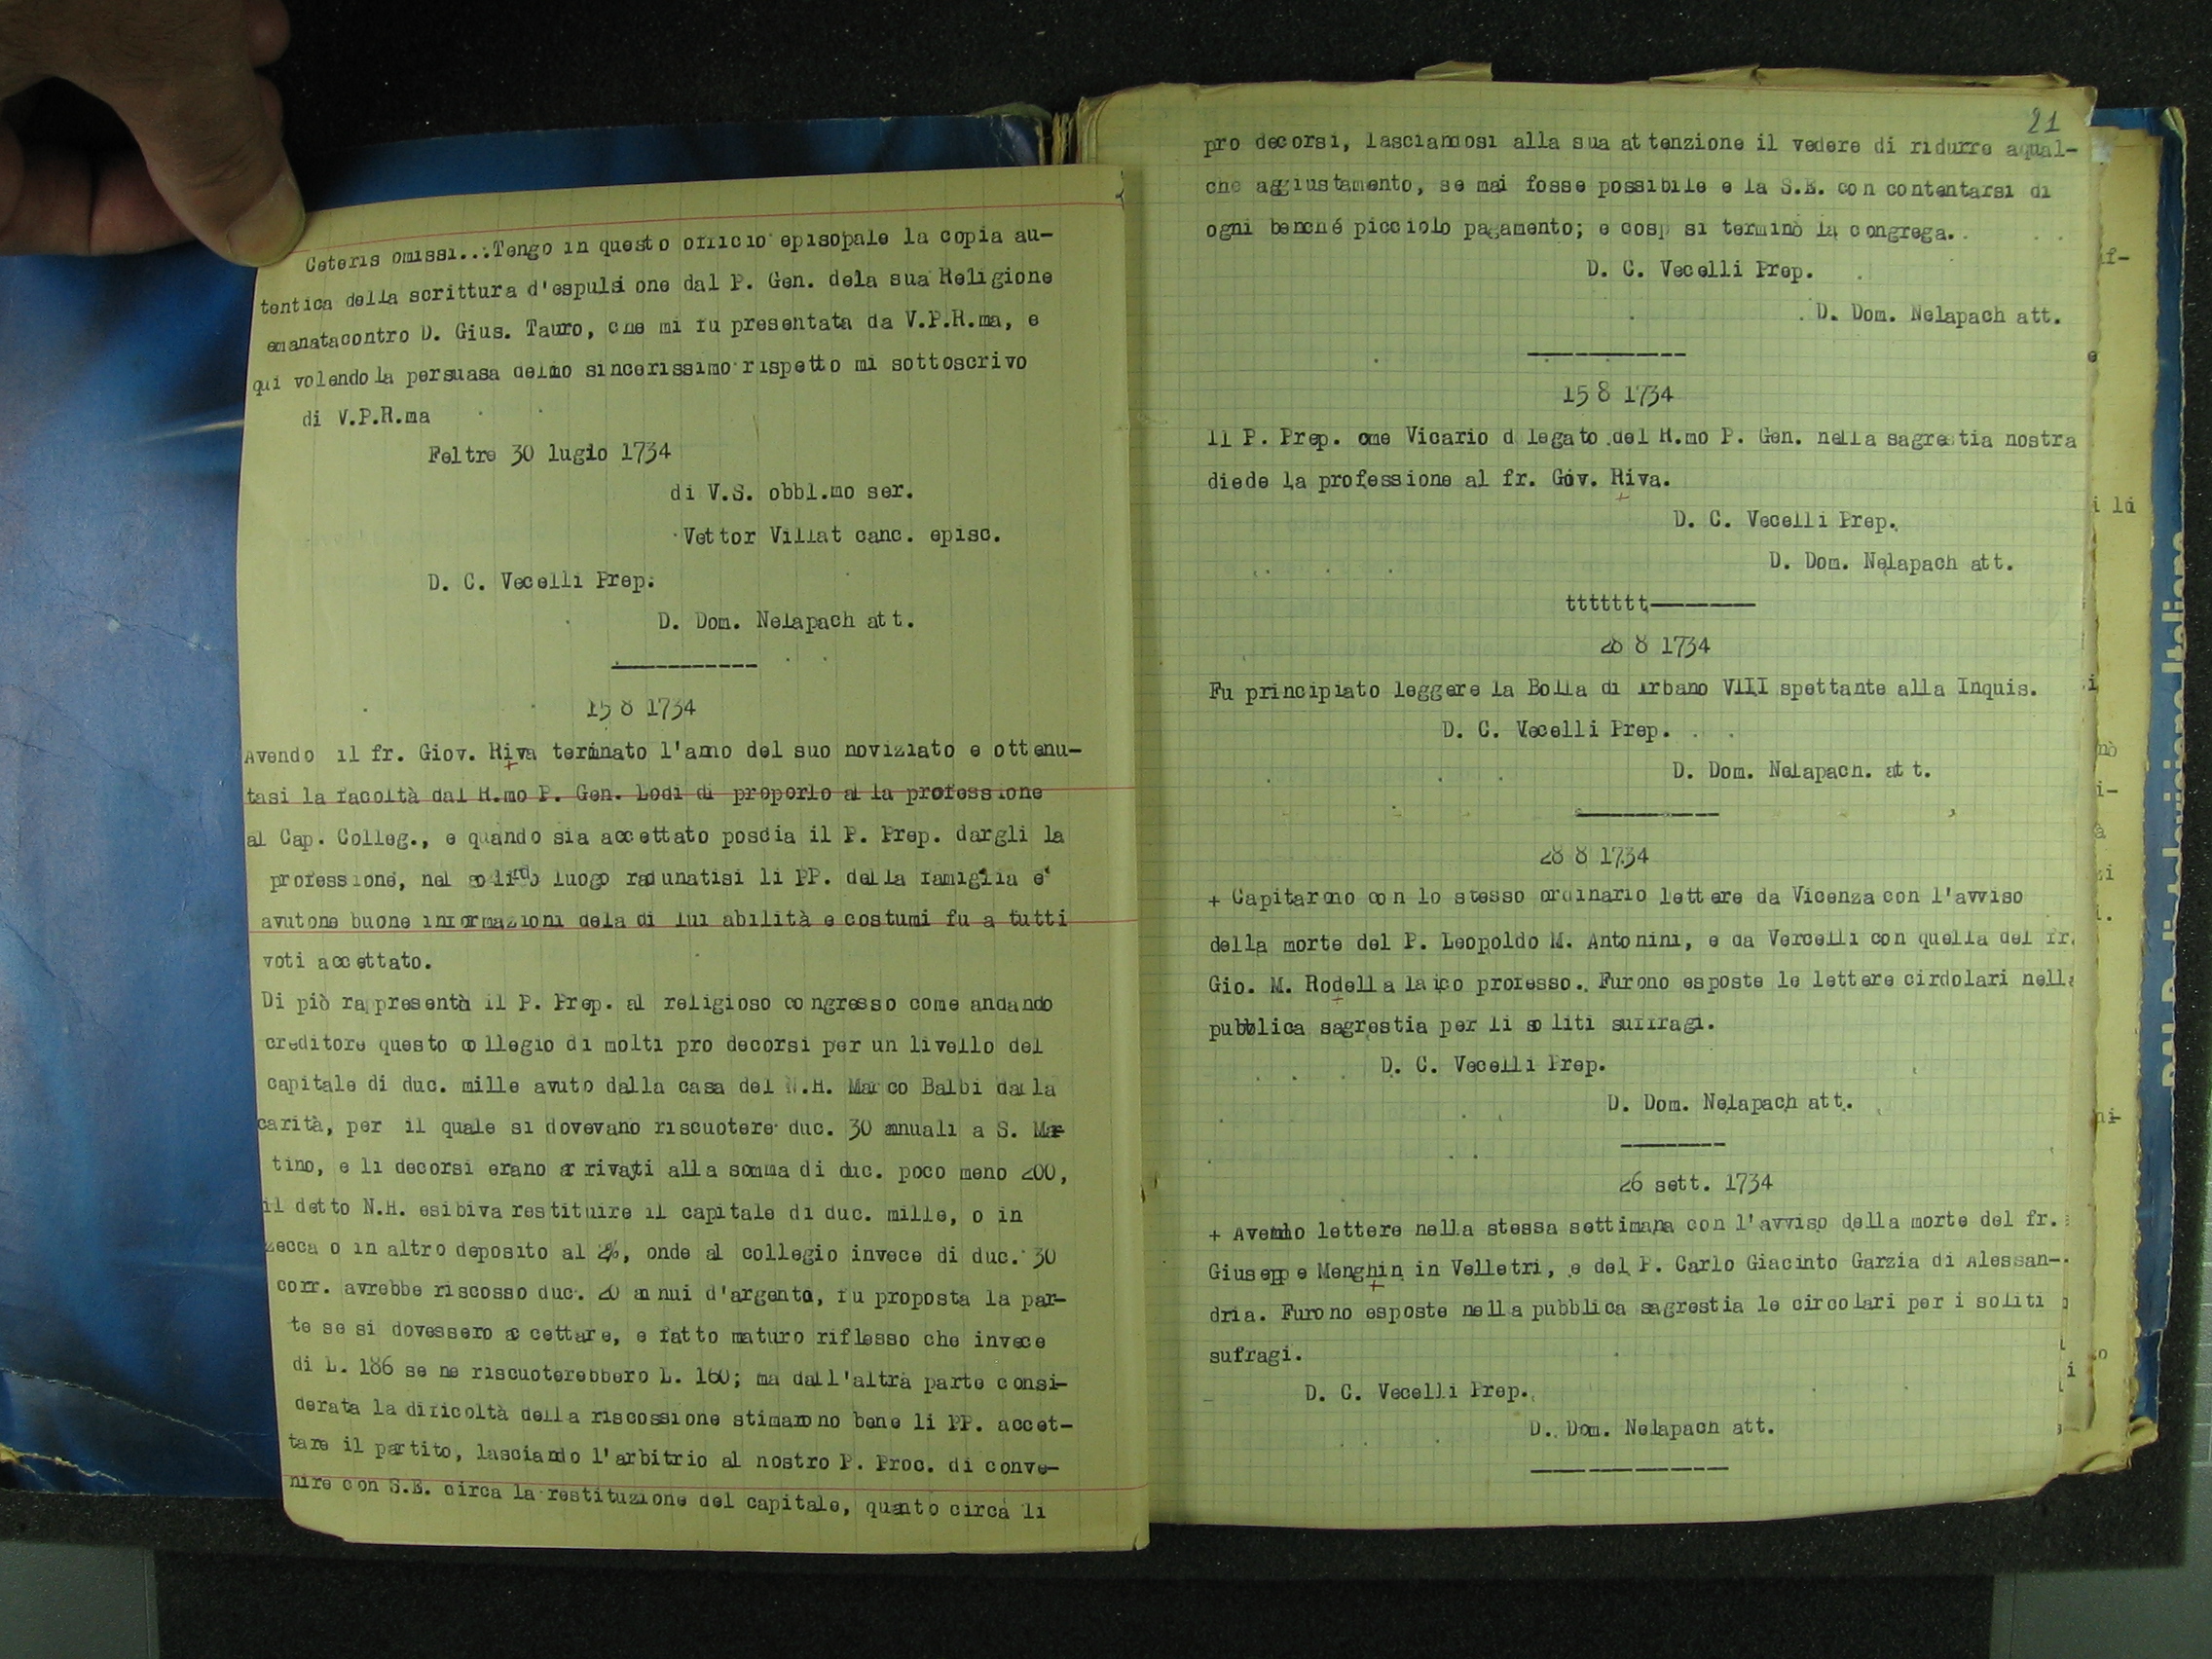 Ceteris omissi...Tengo in questo officio episopale la copia au-
tentica della scrittura d'espulsi one dal P. Gen. dela sua Religione
emanatacontro D. Gius. Tauro, che mi fu presentata da V.P.R.ma, e
qui volendo la persuasa delmo sincerissimo rispetto mi sottoscrivo
di V.P.R.ma
Feltre 30 lugio 1734
di V.S. obbl.mo ser.
Vettor Villat canc. episc.
D. C. Vecelli Prep.
D. Dom. Nelapach att.
15 8 1734
Avendo il fr. Giov. Riva terminato l'anno del suo noviziato e ottenu-
tasi la facoltà dal R.mo P. Gen. Lodi di proporlo al la professione
al Cap. Colleg., e quando sia accettato poscia il P. Prep. dargli la
professione, nel luogo radunatisi li PP. della famiglia e
avutone buone informazioni dela di lui abilità e costumi fu a tutti
voti accettato.
Di piò rappresentà il P. Prep. al religioso congresso come andando
creditore questo collegio di molti pro decorsi per un livello del
capitale di duc. mille avuto dalla casa del N.H. Marco Balbi dalla
carità, per il quale si dovevano riscuotere duc. 30 annuali a S. Mar
tino, e li decorsi erano arrivati alla somma di duc. poco meno 200,
il detto N.H. esibiva restituire il capitale di duc. mille, o in
zecca o in altro deposito al 2%, onde al collegio invece di duc. 30
corr. avrebbe riscosso duc. 20 annui d'argento, fu proposta la par-
te se si dovessero accettare, e fatto maturo riflesso che invece
di L. 186 se ne riscuoterebbero L. 160; ma dall'altra parte consi-
derata la dificoltà della riscossione stimarono bene li PP. accet-
tare il partito, lasciando l'arbitrio al nostro P. Proc. di conve-
nire con S.E. circa la restituzione del capitale, quanto circa li
21
pro decorsi, lasciandosi alla sua attenzione il vedere di ridurre aqual-
che aggiustamento, se mai fosse possibile e la S.E. con contentarsi di
ogni benché picciolo pagamento; e cosp si terminò la congrega.
D. C. Vecelli Prep.
D. Dom. Nelapach att.
15 8 1734
Il P. Prep. ome Vicario d legato del R.mo P. Gen. nella sagrestia nostra
diede la professione al fr. Gov. Riva.
D. C. Vecelli Prep.
D. Dom. Nelapach att.
ttttttt
28 8 1734
Fu principiato leggere la Bolla di Urbano VIII spettante alla Inquis.
D. C. Vecelli Prep.
D. Dom. Nelapach. att.
28 8 1734
+ Capitarono con lo stesso ordinario lettere da Vicenza con l'avviso
della morte del P. Leopoldo M. Antonini, e da Vercelli con quella del fr.
Gio. M. Rodella laico professo. Furono esposte le lettere cirdolari nella
pubblica sagrestia per li soliti suffragi.
D. C. Vecelli Prep.
D. Dom. Nelapach att.
26 sett. 1734
+ lettere nella stessa settimana con l'avviso della morte del fr.
Giuseppe Menghin in Velletri, e del P. Carlo Giacinto Garzia di Alessan-
dria. Furono esposte nella pubblica sagrestia le circolari per i soliti
sufragi.
D. C. Vecelli Prep.
D. Dom. Nelapach att.